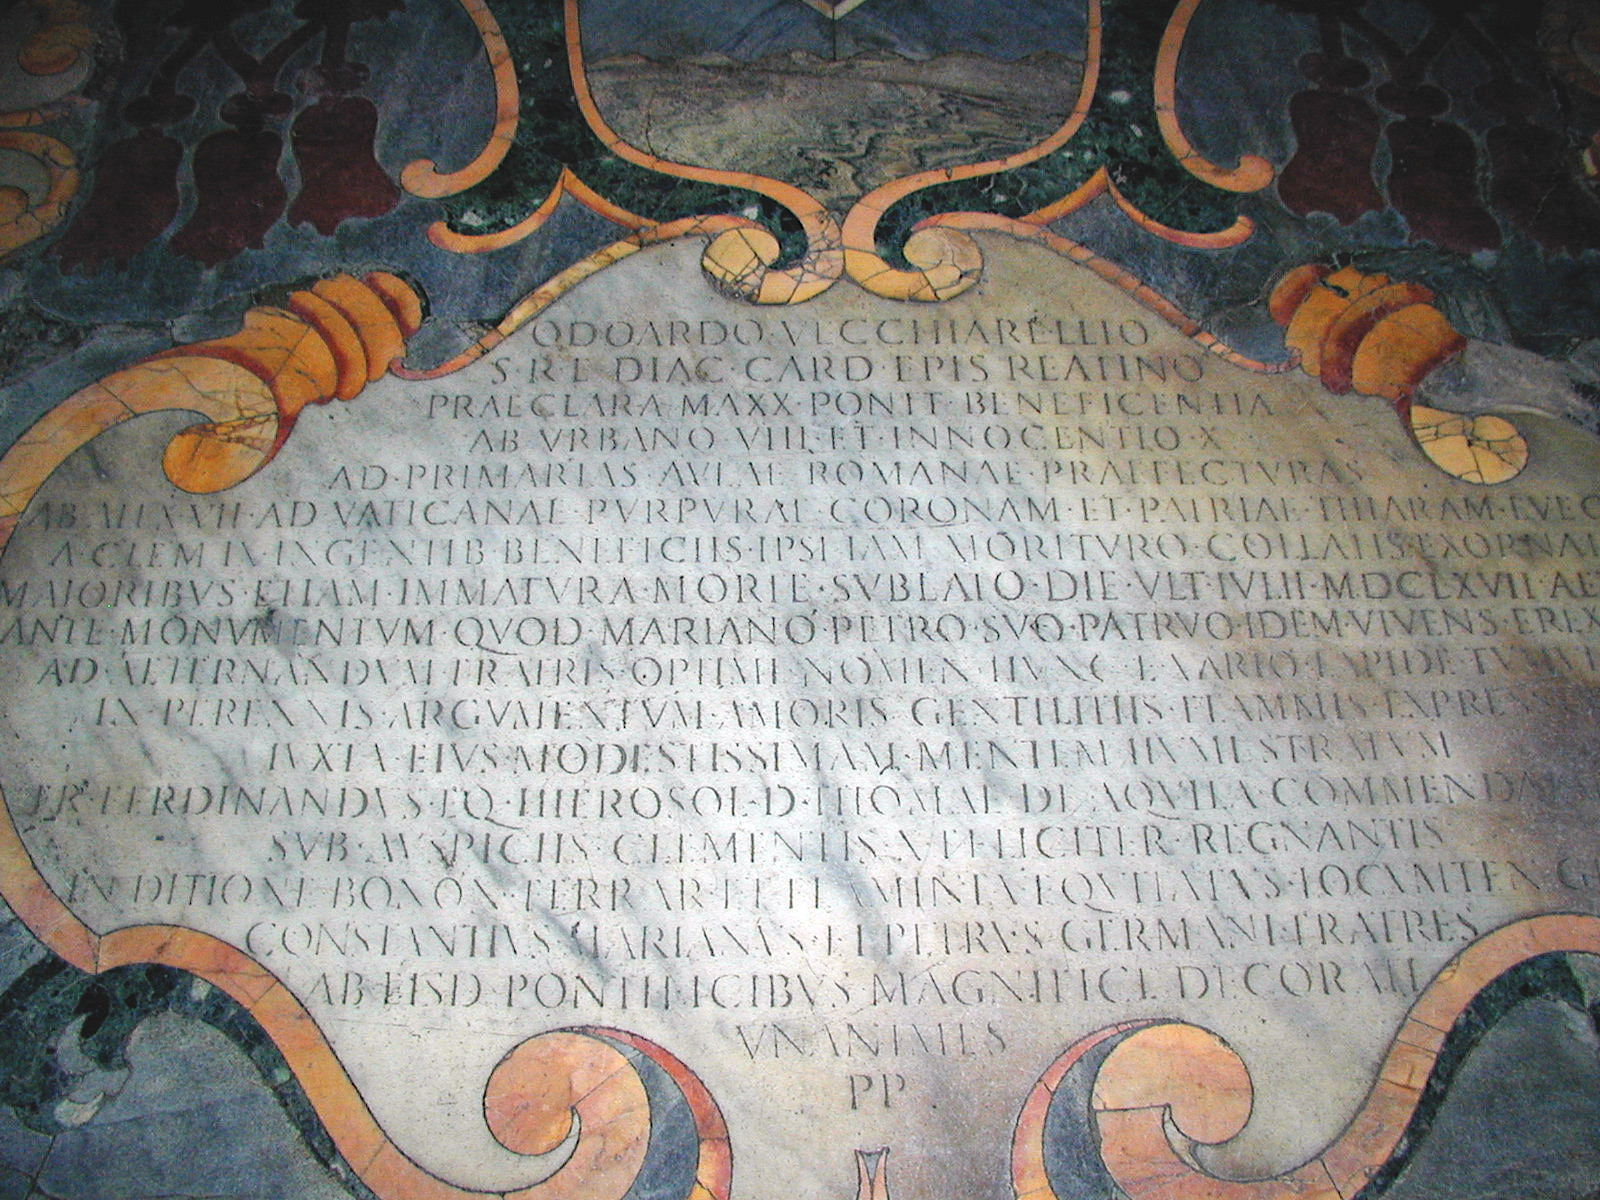 ODOARDO·VECCHIARELLIO
S·R·E·DIAC·CARD·EPIS REATINO
PRAECLARA MAXX·PONTT·BENEFICENTIA
AB VRBANO·VIII·ET·INNOCENTIO·X
AD·PRIMARIAS AVLAE ROMANAE·PRAEFECTVRAS
AD VATICANAE·PVRPVRAE CORONAM·ET·PATRIAE·THIARAM·
A·CLEM INGENTIB·BENEFICIIS·IPSI IAM MORITVRO·COLLATIS·
MAIORIBVS·ETIAM·IMMATVRA·MORTE·SVBLATO·DIE·VLT·IVLII·MDCLXVII
ANTE·MONVMENTVM·QVOD·MARIANO·PETRO·SVO·PATRVO·IDEM·VIVENS·
AD·AETERNANDVM FRATRIS·OPTIMI NOMEN HVNC·E VARIO·LAPIDE
IN·PERENNIS·ARGVMENTVM·AMORIS·GENTILITIIS·FLAMMIS
IVXTA·EIVS·MODESTISSIMAM·MENTEM HVMI STRATVM
FR·FERDINANDVS·EQ·HIEROSOL·D·THOMAE·DE AQVILA·
SVB·AVSPICIIS CLEMENTIS FELICITER·REGNANTIS
IN·DITIONE·BONON·FERRAR·ET FLAMINIA EQVITATVS·LOCVMTEN
CONSTANTIVS·MARIANVS·ET PETRVS·GERMANI·FRATRES
AB·EISD·PONTIFICIBVS MAGNIFICE·DECORATI
VNANIMES
PP